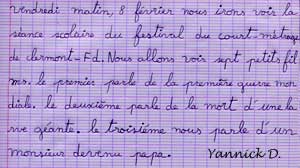 vendredi matin, 8 février nous irons voir la
séance scolaire du festival du court-métrage
de clermont-Fd. Nous allons voir sept petits fil
ms. le premier parle de la première guerre mon
diale. le deuxième parle de la mort d'une la
ve géante. le troisième nous parle d'un
monsieur devenu papa. Yannick D.